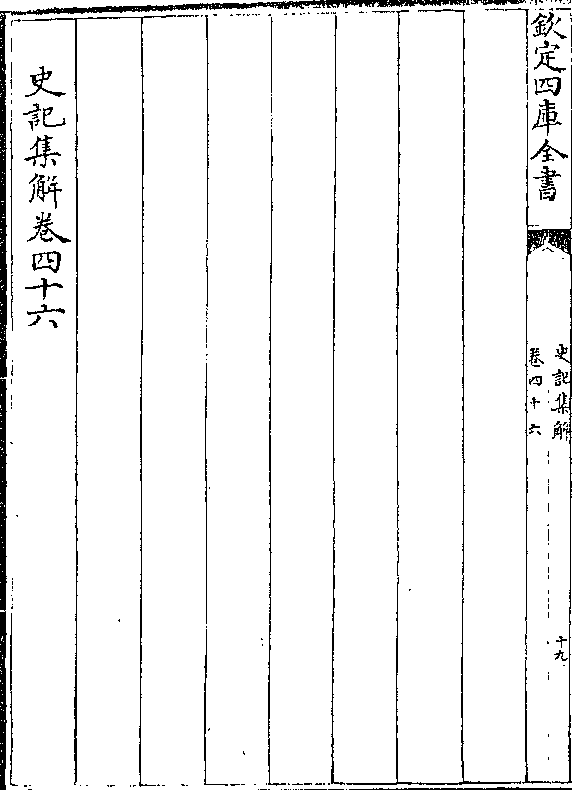 欽定四庫全書
史記集解
卷四十六
十九
史記集解卷四十六